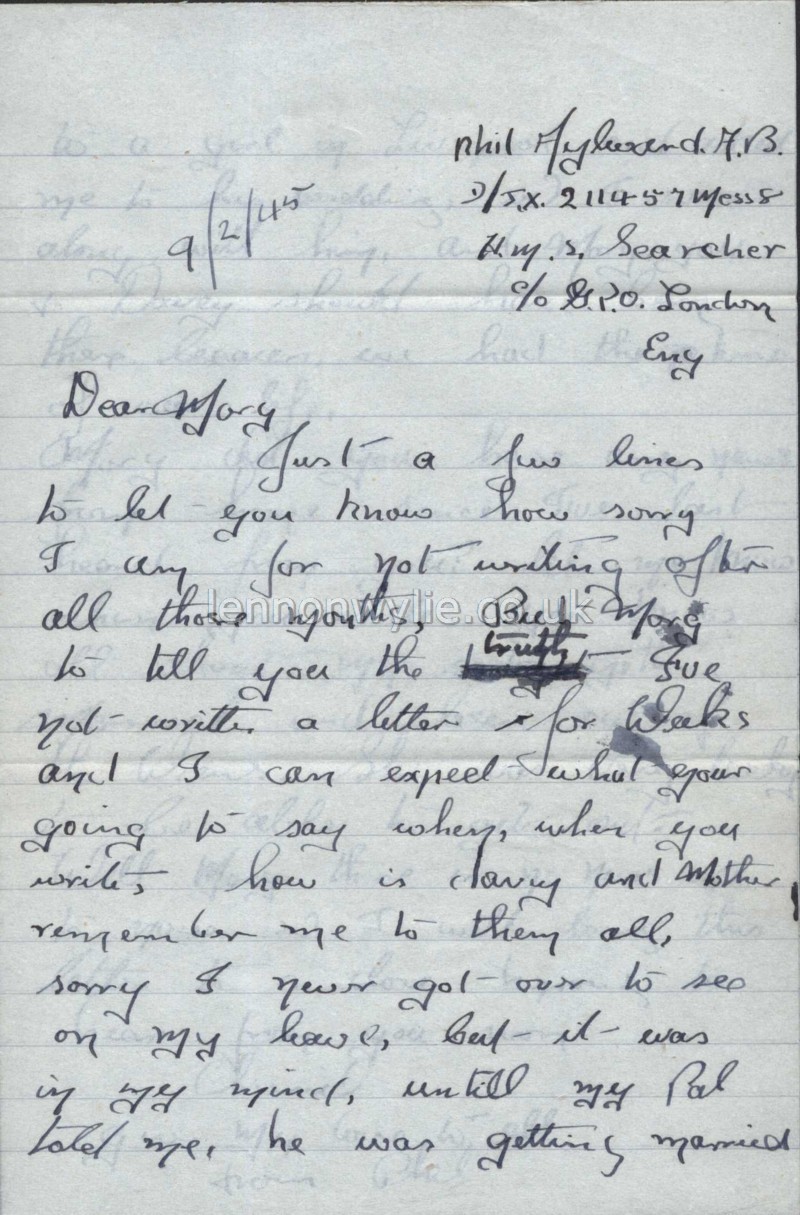 Phil A.B.
D/J.X. 211457 Mess 8
9/2/45
H.M.S. Searcher
c/o G.P.O. London
Eng
Dear Mary
Just a few lines
to let you know how sorry
I am for not writing after
all those months, But Mary
to tell you the truth I've
not written a letter for Weeks
and I can expect what your
going to say when, when you
write, how is davy and Mother
remember me to them all,
sorry I never got over to see
on my leave, but it was
in my mind, untill my Pal
told me, he was getting married
lennonwylie.co.uk